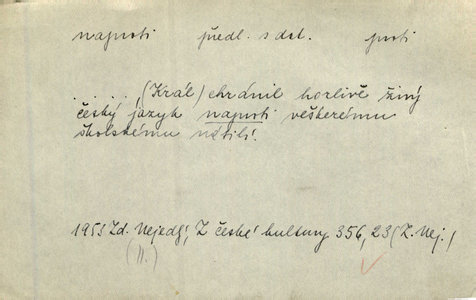 napnoti předl. s dat. proti
. . . . . (Král) chránil horlivě živý
český jazyk napnoti veškerému
školskému násilí.
1953 Zd. Nejedlý, Z české kultury 356, 23 (Z. Nej.)
(N.)